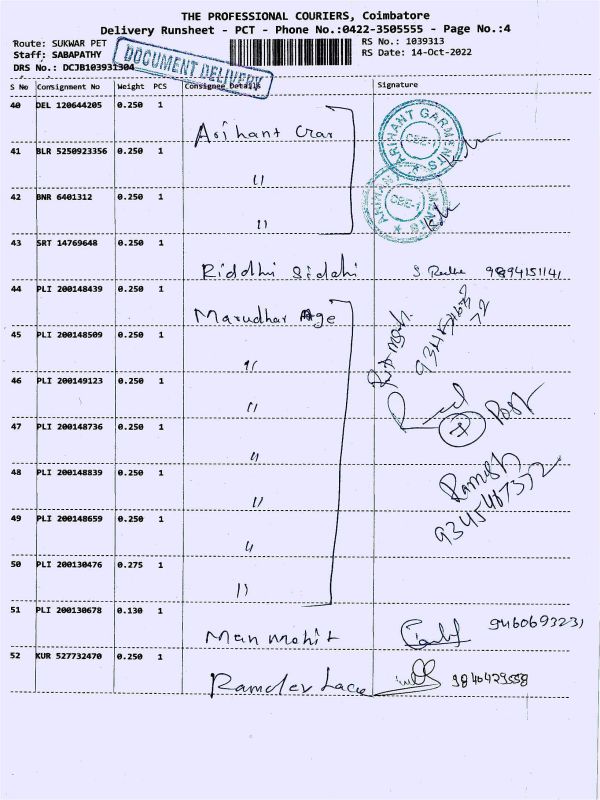 THE PROFESSIONAL COURIERS, Coimbatore
Delivery Runsheet - PCT - Phone No.:0422-3505555 - Page No.:4
Route: SUKWAR PET
RS No.: 1039313
Staff: SABAPATHY
RS Date: 14-Oct-2022
DRS No.: DCJB103931304
DOCUMENT DELIVERY
S No Consignment No Weight PCS Consignee Details Signature
40 DEL 120644205 0.250 1
Arihant Crar
ARIHANT GARMENTS CBE-1
41 BLR 5250923356 0.250 1
"
42 BNR 6401312 0.250 1
"
ARIHANT GARMENTS CBE-1
43 SRT 14769648 0.250 1
Riddhi Siddhi 9894151141
44 PLI 200148439 0.250 1
Marudhar Age
45 PLI 200148509 0.250 1
"
46 PLI 200149123 0.250 1
"
47 PLI 200148736 0.250 1
"
48 PLI 200148839 0.250 1
"
Ramesh
49 PLI 200148659 0.250 1
"
50 PLI 200130476 0.275 1
"
51 PLI 200130678 0.130 1
Manmohit 9460693231
52 KUR 527732470 0.250 1
Ramdev Lace 9840429558